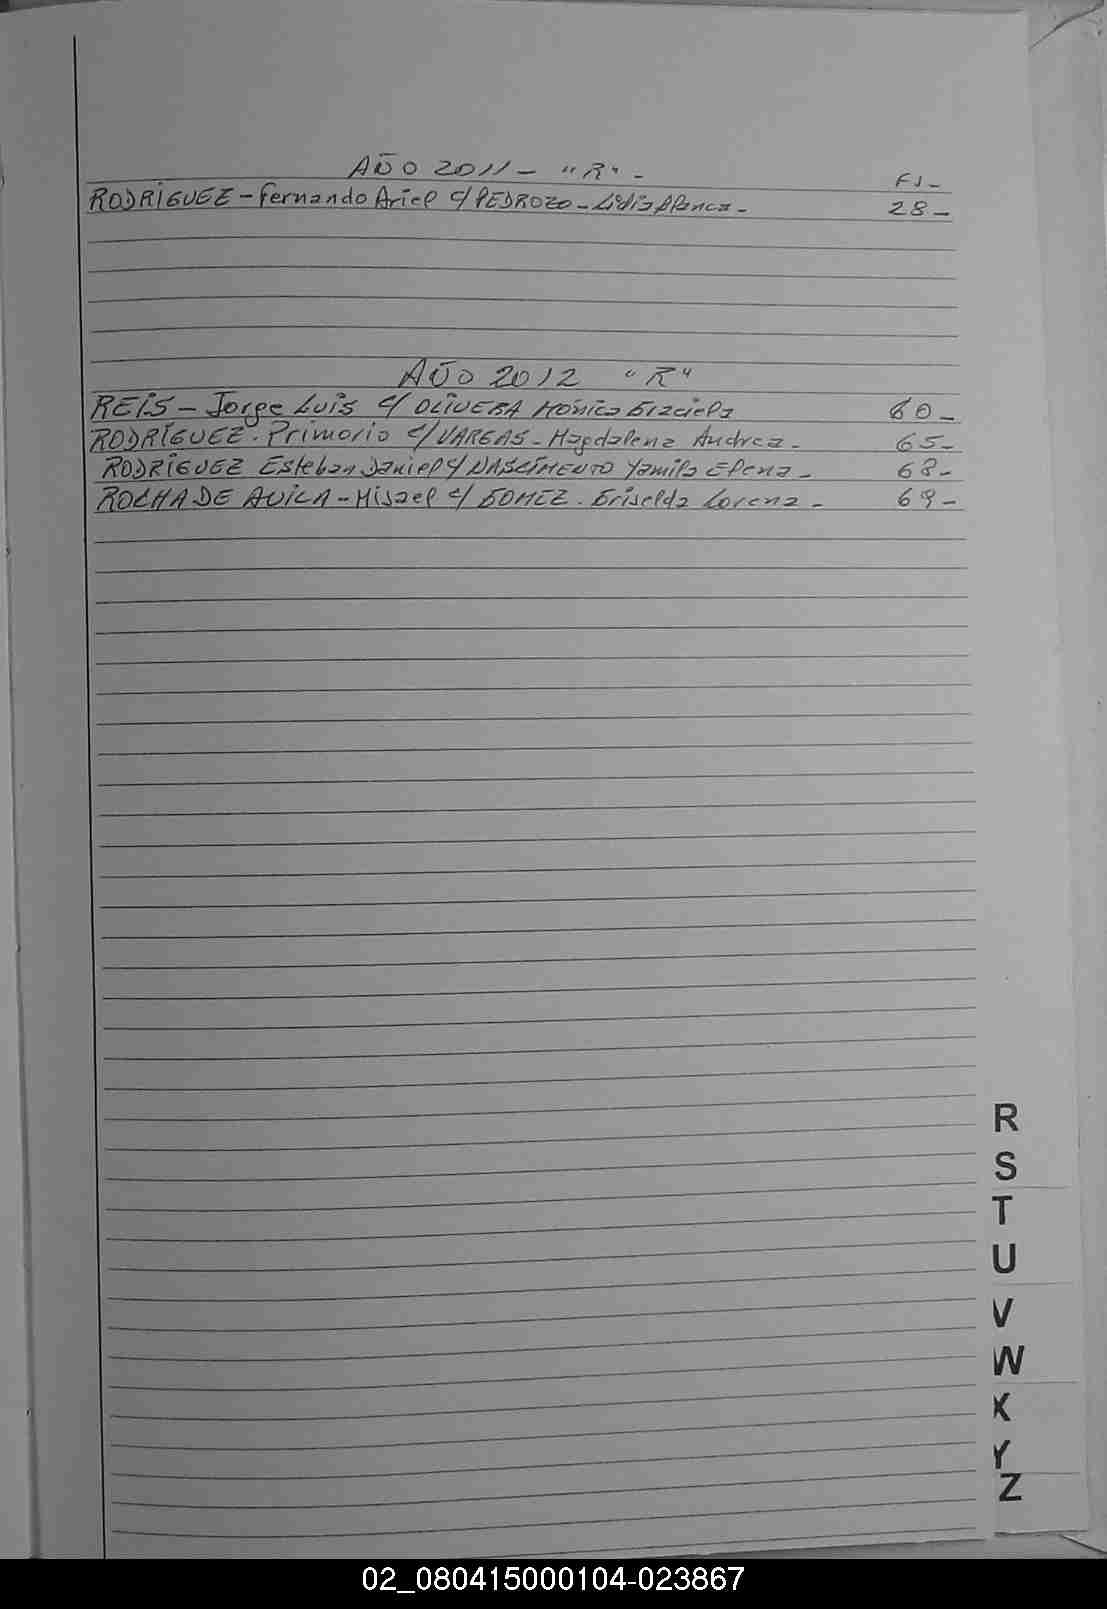 AÑO 2011 - "R" -
FJ-
RODRÍGUEZ - Fernando Ariel c/ PEDROZO - Lidia Blanca - 28 -
AÑO 2012 "R"
REIS - Jorge Luis c/ OLIVERA Mónica Graciela 60 -
RODRÍGUEZ - Primorio c/ VARGAS - Magdalena Andrea - 65 -
RODRÍGUEZ Esteban Daniel c/ NASCIMENTO Yamila Elena - 68 -
ROCHA DE AVILA - Misael c/ GOMEZ - Griselda Lorena - 69 -
R
S
T
U
V
W
X
Y
Z
02_080415000104-023867